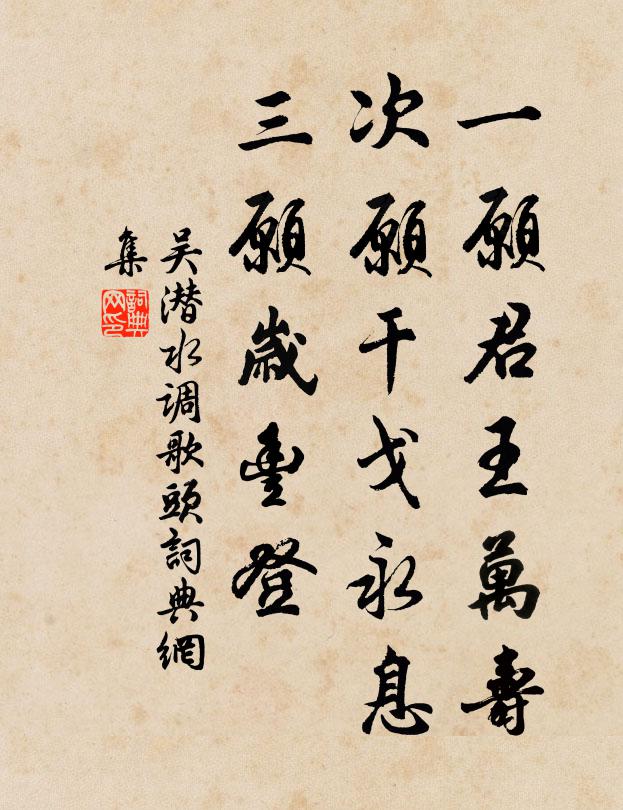 一願君王萬壽
次願干戈永息
三願歲豐登
吴潜水调歌頭詞典網
集
詞典网印